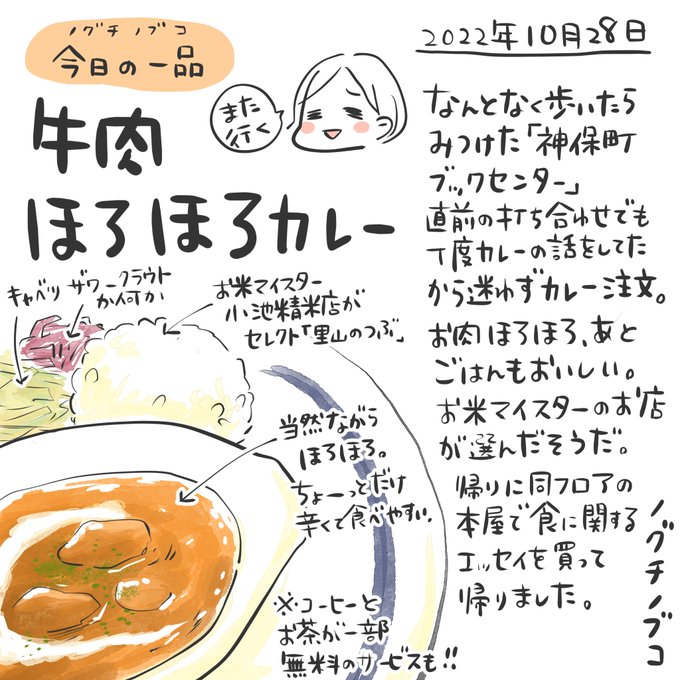 ノグチノブコ
今日の一品
2022年10月28日
牛肉
ほろほろカレー
また
行く
なんとなく歩いたら
みつけた「神保町
ブックセンター」
直前の打ち合わせでも
丁度カレーの話をしてた
から迷わずカレー注文。
お肉ほろほろ、あと
ごはんもおいしい。
お米マイスターのお店
が選んだそうだ。
帰りに同フロアの
本屋で食に関する
エッセイを買って
帰りました。
ノグチノブコ
キャベツ
ザワークラウト
か何か
お米マイスター
小池精米店が
セレクト「里山のつぶ」
当然ながら
ほろほろ。
ちょーっとだけ
辛くて食べやすい。
※コーヒーと
お茶が一部
無料のサービスも!!